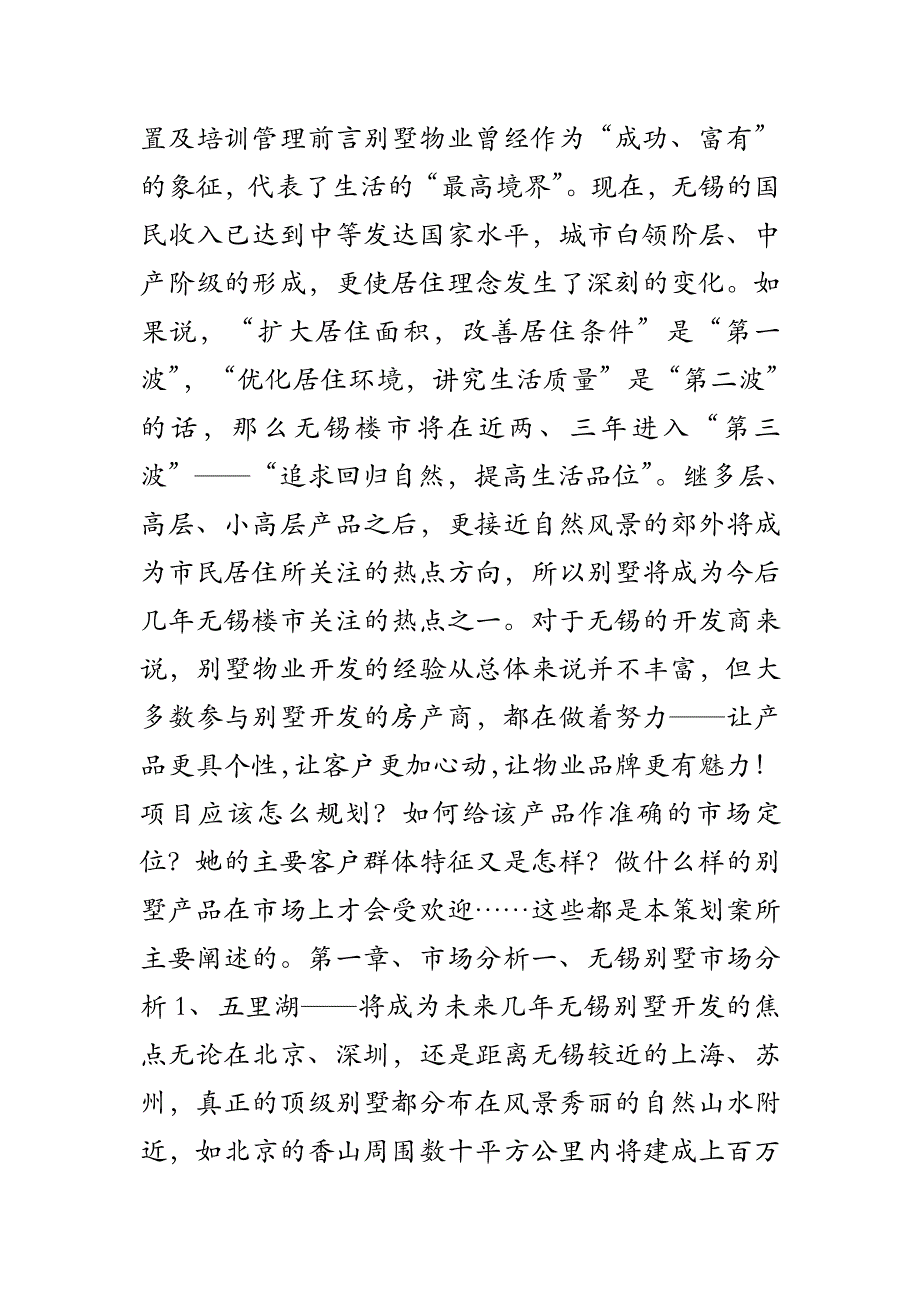 置及培训管理前言别墅物业曾经作为“成功、富有”
的象征，代表了生活的“最高境界”。现在，无锡的国
民收入已达到中等发达国家水平，城市白领阶层、中
产阶级的形成，更使居住理念发生了深刻的变化。如
果说，“扩大居住面积，改善居住条件”是“第一
波”，“优化居住环境，讲究生活质量”是“第二波”
的话，那么无锡楼市将在近两、三年进入“第三
波”——“追求回归自然，提高生活品位”。继多层、
高层、小高层产品之后，更接近自然风景的郊外将成
为市民居住所关注的热点方向，所以别墅将成为今后
几年无锡楼市关注的热点之一。对于无锡的开发商来
说，别墅物业开发的经验从总体来说并不丰富，但大
多数参与别墅开发的房产商，都在做着努力——让产
品更具个性，让客户更加心动，让物业品牌更有魅力！
项目应该怎么规划？如何给该产品作准确的市场定
位？她的主要客户群体特征又是怎样？做什么样的别
墅产品在市场上才会受欢迎……这些都是本策划案所
主要阐述的。第一章、市场分析一、无锡别墅市场分
析1、五里湖——将成为未来几年无锡别墅开发的焦
点无论在北京、深圳，还是距离无锡较近的上海、苏
州，真正的顶级别墅都分布在风景秀丽的自然山水附
近，如北京的香山周围数十平方公里内将建成上百万